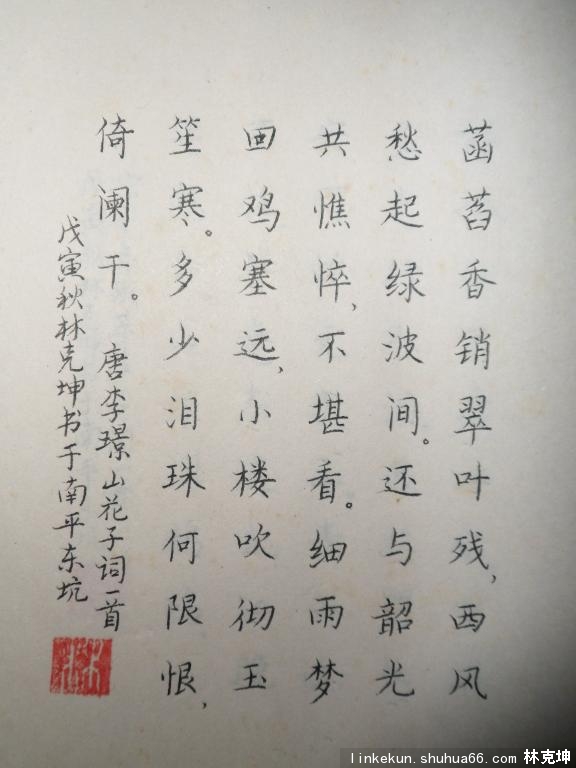 菡萏香销翠叶残，西风
愁起绿波间。还与韶光
共憔悴，不堪看。细雨梦
回鸡塞远，小楼吹彻玉
笙寒。多少泪珠何限恨，
倚阑干。 唐李璟山花子词一首
戊寅秋林克坤书于南平东坑
linkekun.shuhua66.com 林克坤